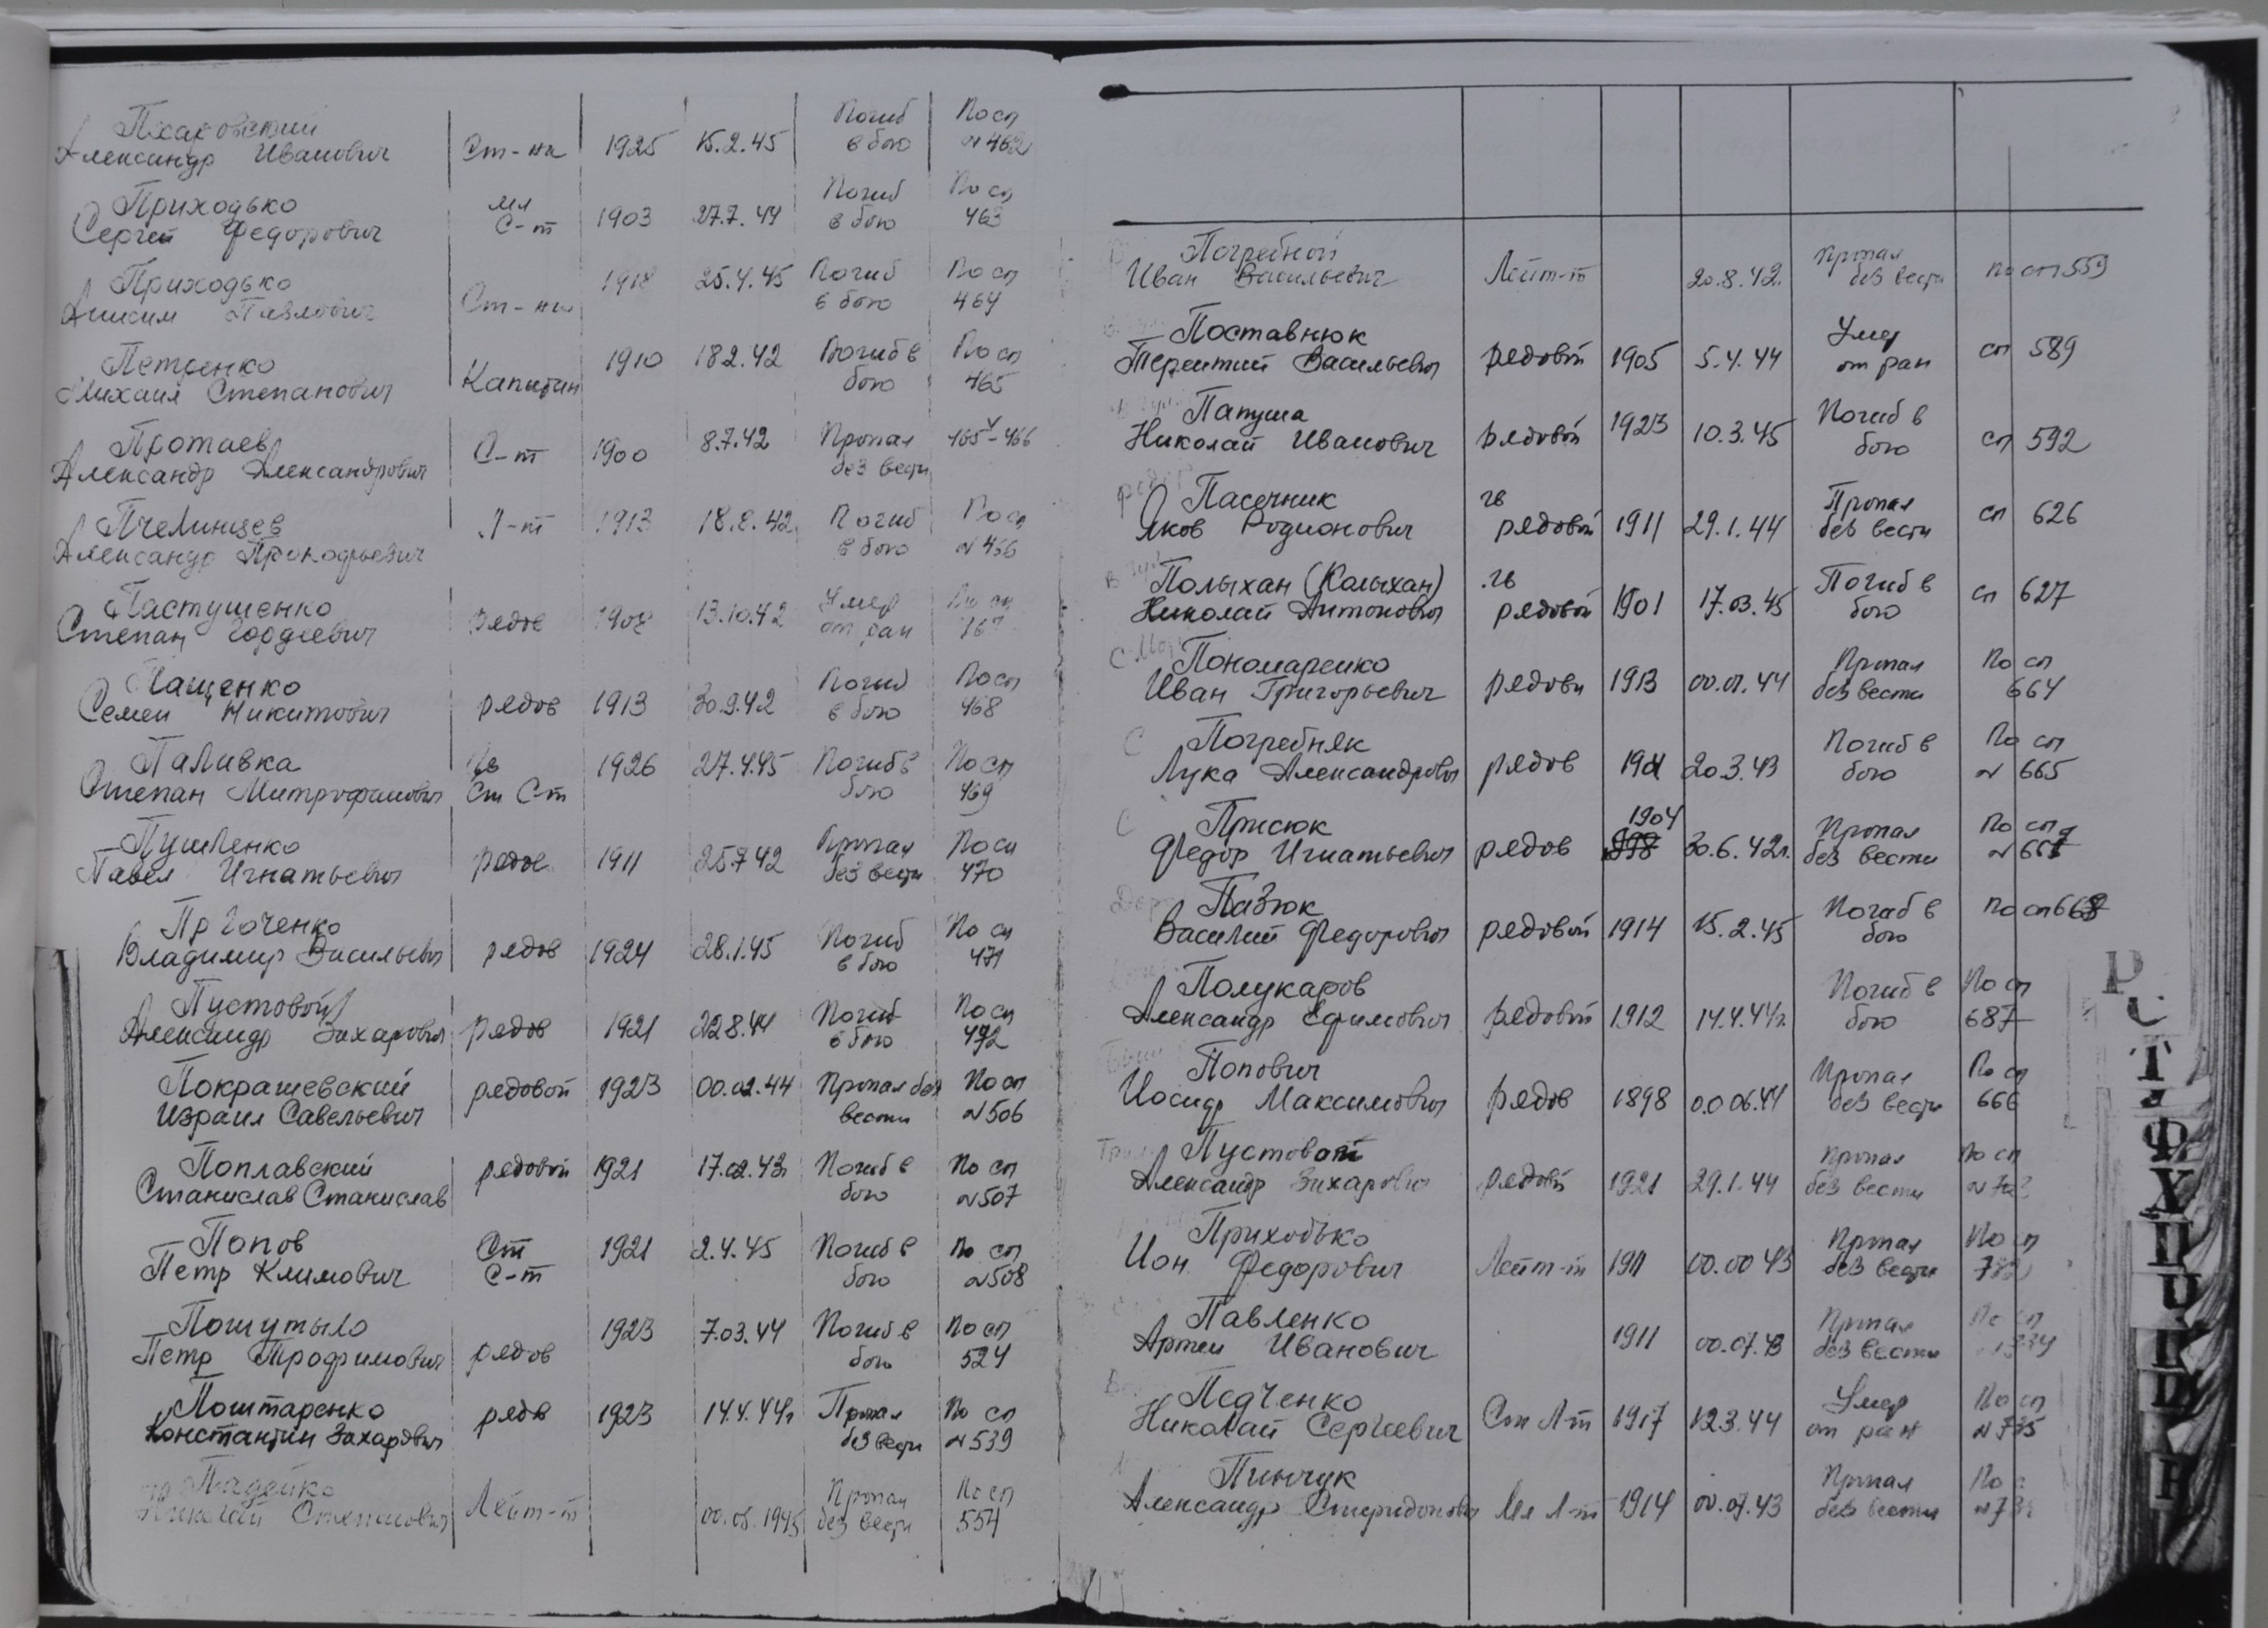 Погиб По сп
Александр Иванович Ст-на 1925 15.2.45 в бою № 462
Приходько мл Погиб По сп
Сергей Федорович С-т 1903 27.7.44 в бою 463
Приходько 1918 25.4.45 Погиб По сп
Павлович Ст-на в бою 464
Петренко 1910 18.2.42 Погиб в По сп
Михаил Степанович Капитан бою 465
Протаев 8.7.42 Пропал 465-466
Александр Александрович С-т 1900 без вести
Пчелинцев Л-т 1913 18.8.42 Погиб По сп
Александр Прокофьевич в бою № 466
Пастушенко Умер По сп
Степан Гордеевич Рядов 1908 13.10.42 от ран 467
Пащенко Погиб По сп
Семен Никитович рядов 1913 30.9.42 в бою 468
Паливка Гв 1926 27.4.45 Погиб в По сп
Степан Митрофанович Ст С-т бою 469
Пушленко Пропал По сп
Павел Игнатьевич рядов 1911 25.7.42 без вести 470
Погиб По сп
Владимир Васильевич рядов 1924 28.1.45 в бою 471
Пустовой Погиб По сп
Александр Захарович рядов 1921 22.8.44 в бою 472
Покрашевский рядовой 1923 00.02.44 Пропал без По сп
Израил Савельевич вести № 506
Поплавский рядовой 1921 17.02.43г Погиб в По сп
Станислав Станислав бою № 507
Попов Ст 1921 2.4.45 Погиб в По сп
Петр Климович С-т бою № 508
Пошутыло 1923 7.03.44 Погиб в По сп
Петр Трофимович рядов бою 524
Поштаренко рядов 1923 14.4.44г Пропал По сп
Константин Захарович без вести № 539
Пропал По сп
Николай Степанович Лейт-т 00.05.1945 без вести 554
Погребной Пропал
Иван Васильевич Лейт-т 20.8.42. без вести по сп 559
Поставнюк Умер
Терентий Васильевич рядовой 1905 5.4.44 от ран сп 589
Папуша Погиб в
Николай Иванович рядовой 1923 10.3.45 бою сп 592
Пасечник гв Пропал
Яков Родионович рядовой 1911 29.1.44 без вести сп 626
Полыхан (Колыхан) гв Погиб в
Николай Антонович рядовой 1901 17.03.45 бою сп 627
Пономаренко Пропал По сп
Иван Григорьевич рядовой 1913 00.01.44 без вести 664
Погребняк Погиб в По сп
Лука Александрович рядов 20.3.43 бою № 665
Присюк 1904 Пропал По сп
Федор Игнатьевич рядов 898 30.6.42г. без вести №
Пазюк Погиб в по сп 668
Василий Федорович рядовой 1914 15.2.45 бою
Полукаров Погиб в По сп
Александр Ефимович рядовой 1912 14.4.44г. бою 687
Попович Пропал По сп
Иосиф Максимович рядов 1898 00.06.44 без вести 666
Пустовой Пропал По сп
Александр Захарович рядовой 1921 29.1.44 без вести
Приходько Пропал По сп
Ион Федорович Лейт-т 1911 00.00.43 без вести
Павленко Пропал По сп
Артем Иванович 1911 00.07.43 без вести
Педченко Умер По сп
Николай Сергеевич Ст Л-т 1917 12.3.44 от ран № 735
Пинчук Пропал По
Александр Спиридонович Мл Л-т 1914 00.07.43 без вести
Р
С
Т
Ф
Х